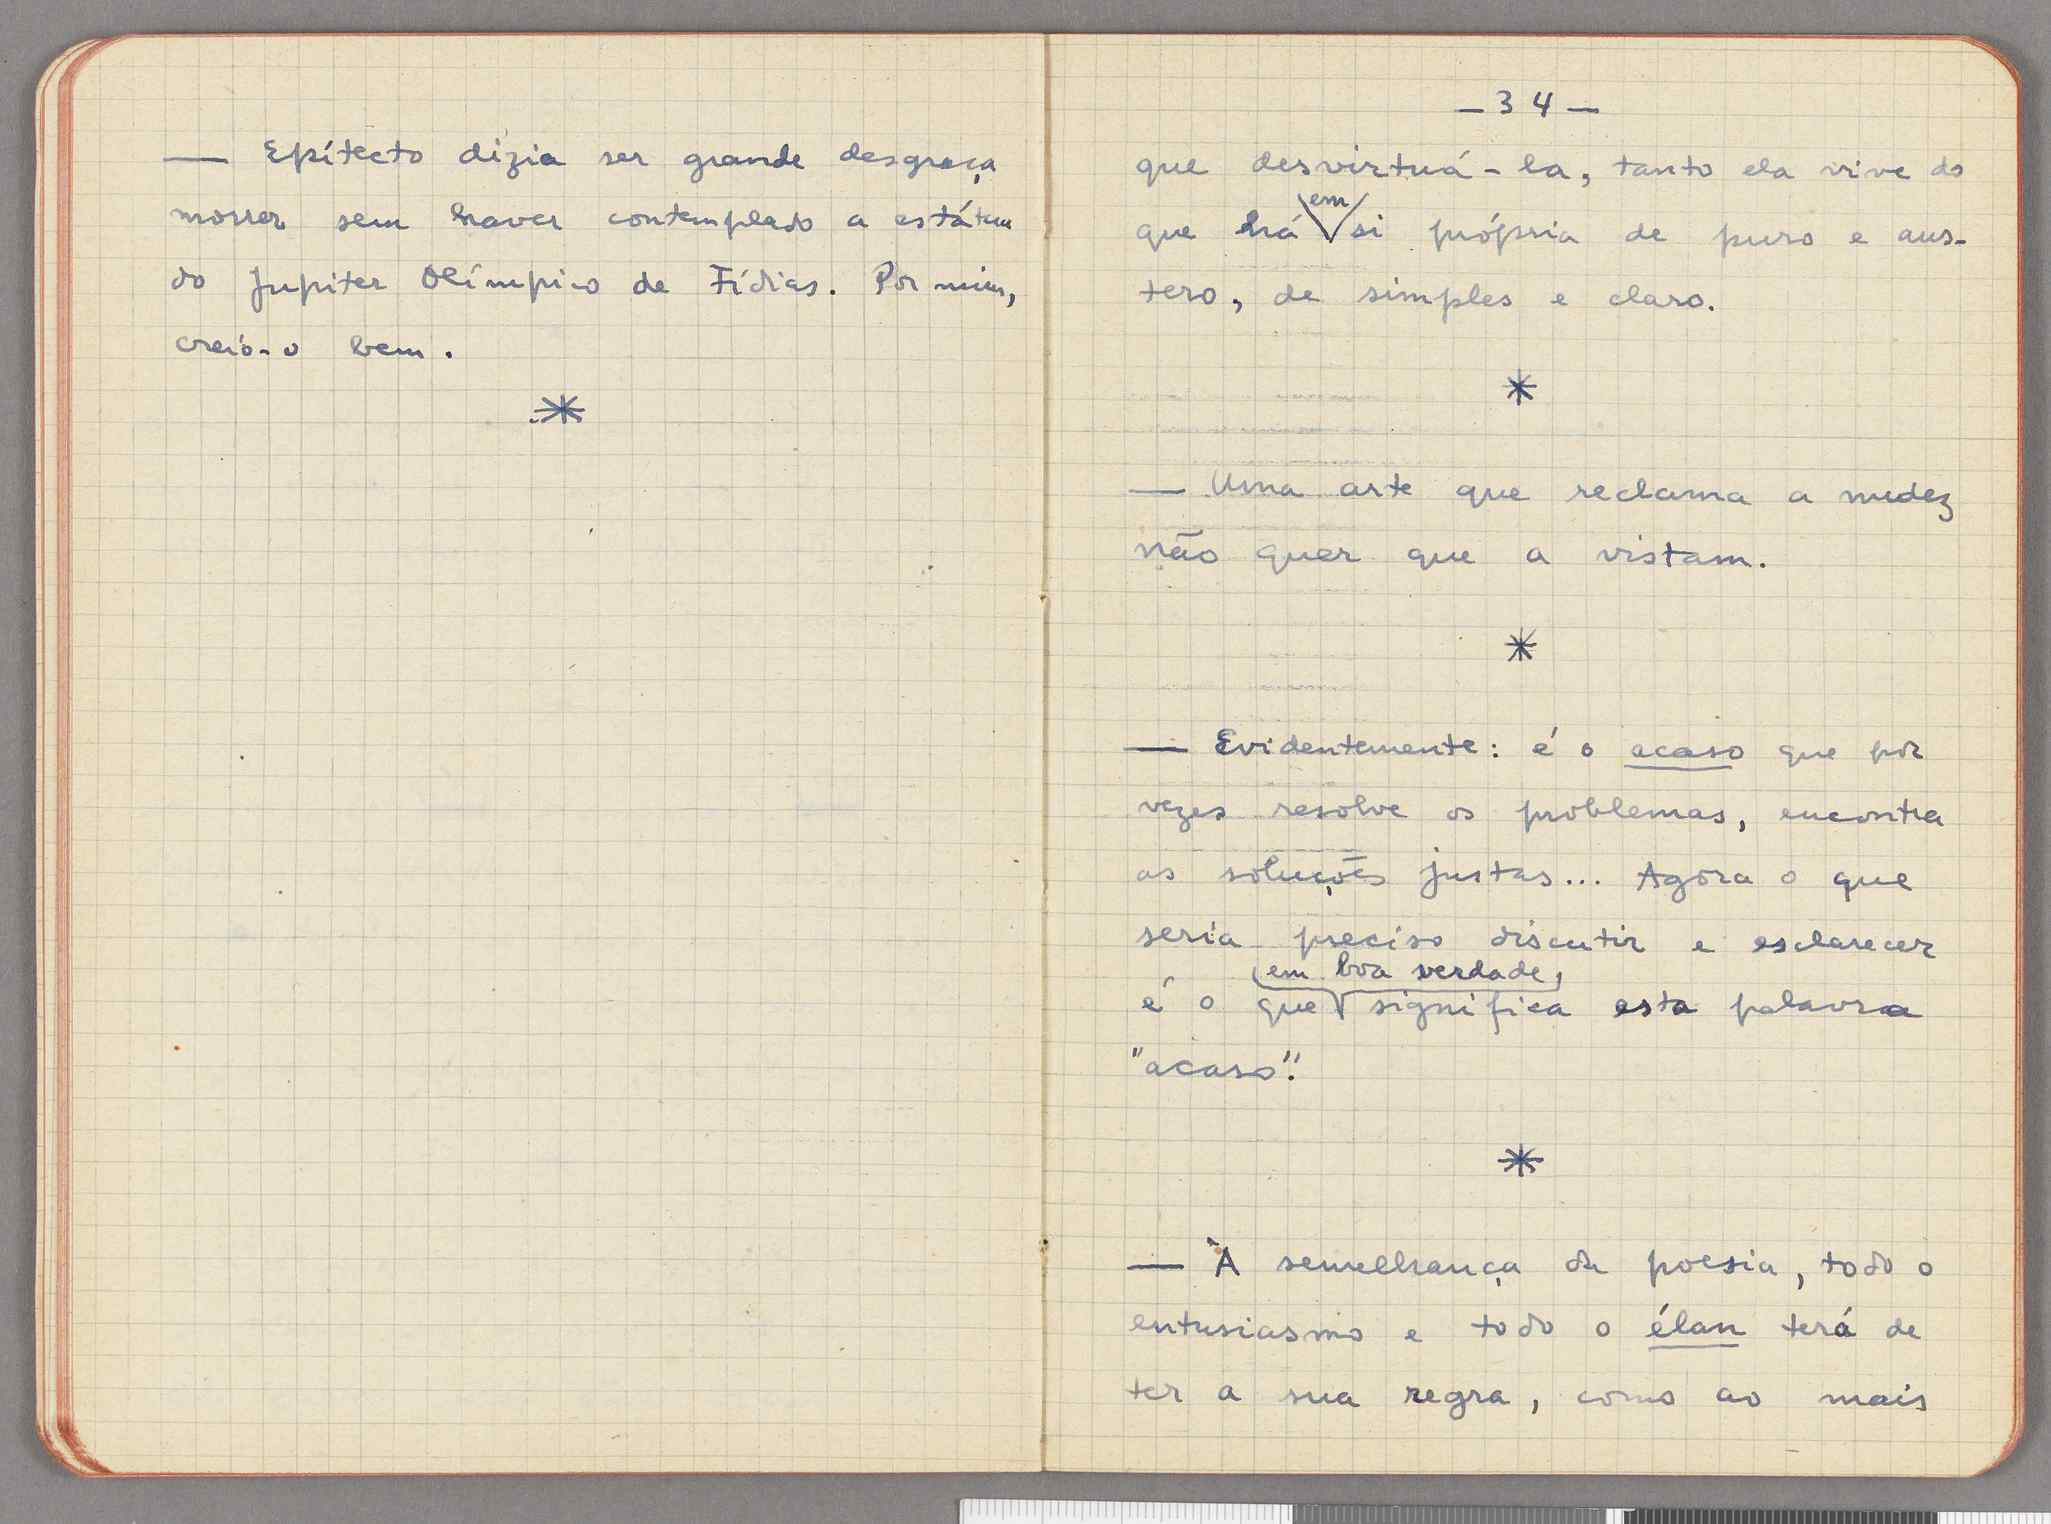 — Epítecto dizia ser grande desgraça
morrer sem haver contemplado a estátua
do Jupiter Olímpico de Fídias. Por mim,
creio-o bem.
*
— 34 —
que desvirtuá-la, tanto ela vive do
que há em si própria de puro e aus-
tero, de simples e claro.
*
— Uma arte que reclama a nudez
não quer que a vistam.
*
— Evidentemente: é o acaso que por
vezes resolve os problemas, encontra
as soluções justas... Agora o que
seria preciso discutir e esclarecer
é o que em boa verdade, significa esta palavra
"acaso".
*
— À semelhança da poesia, todo o
entusiasmo e todo o élan terá de
ter a sua regra, como ao mais